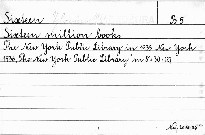 Sixteen
Sixteen million books
The New York Public Library in 1936. New York
1936. The New York Public Library in 8°. 30 -